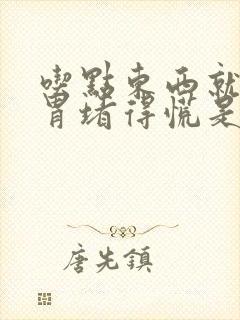 喫點東西就
胃堵得慌是
唐先鎮